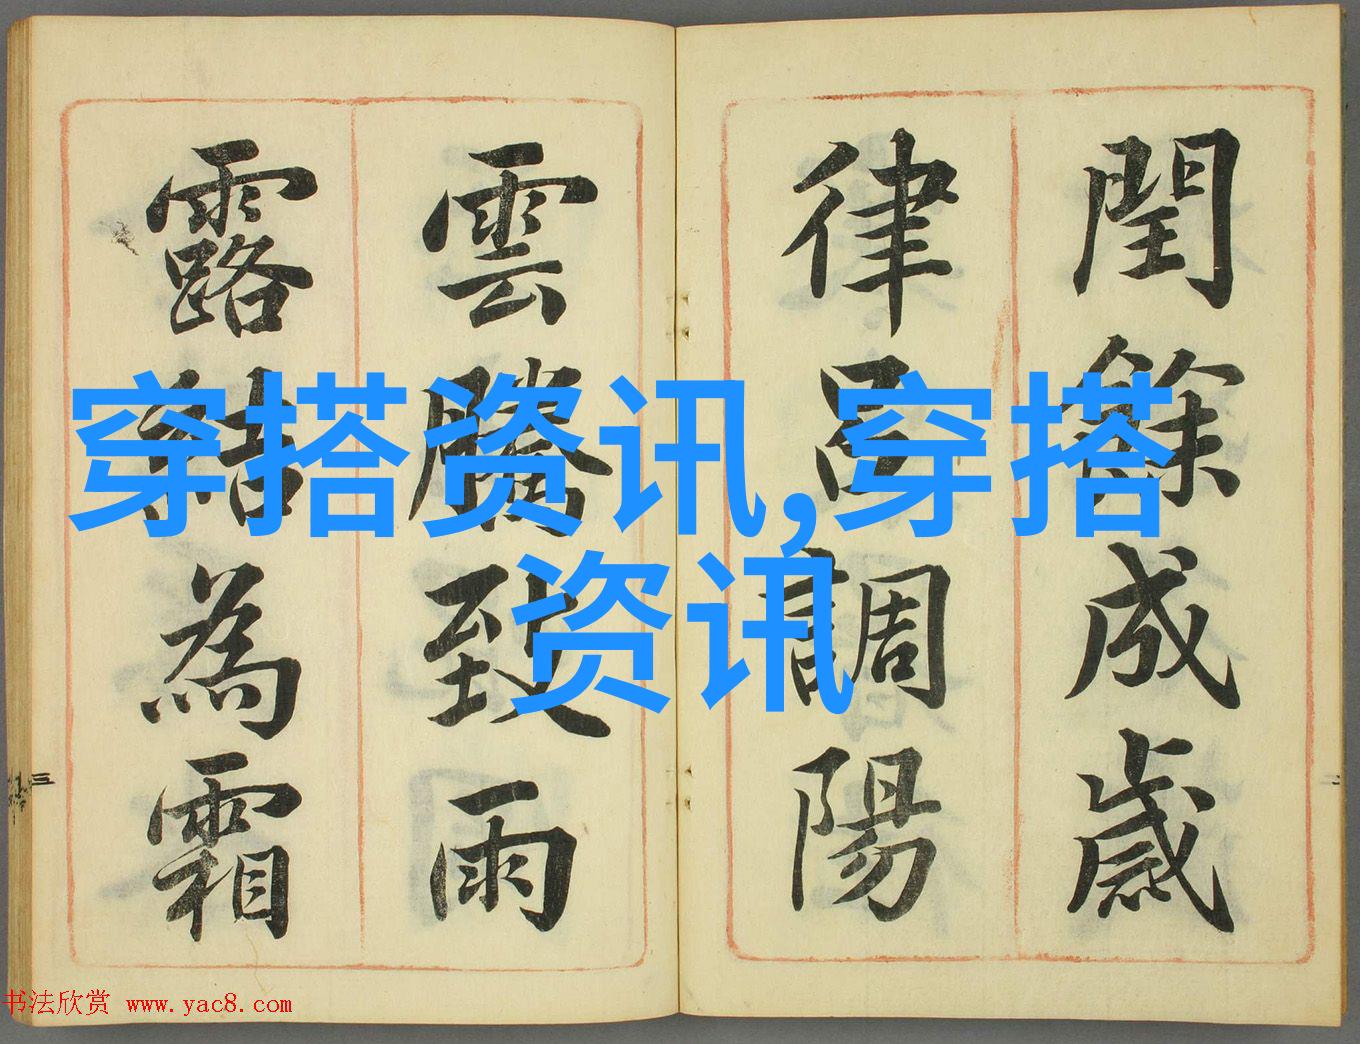 閏餘成歲
律呂調陽
雲騰致雨
露結為霜
穿搭资讯,穿搭
资讯
三
二
书法欣赏 www.yac8.com